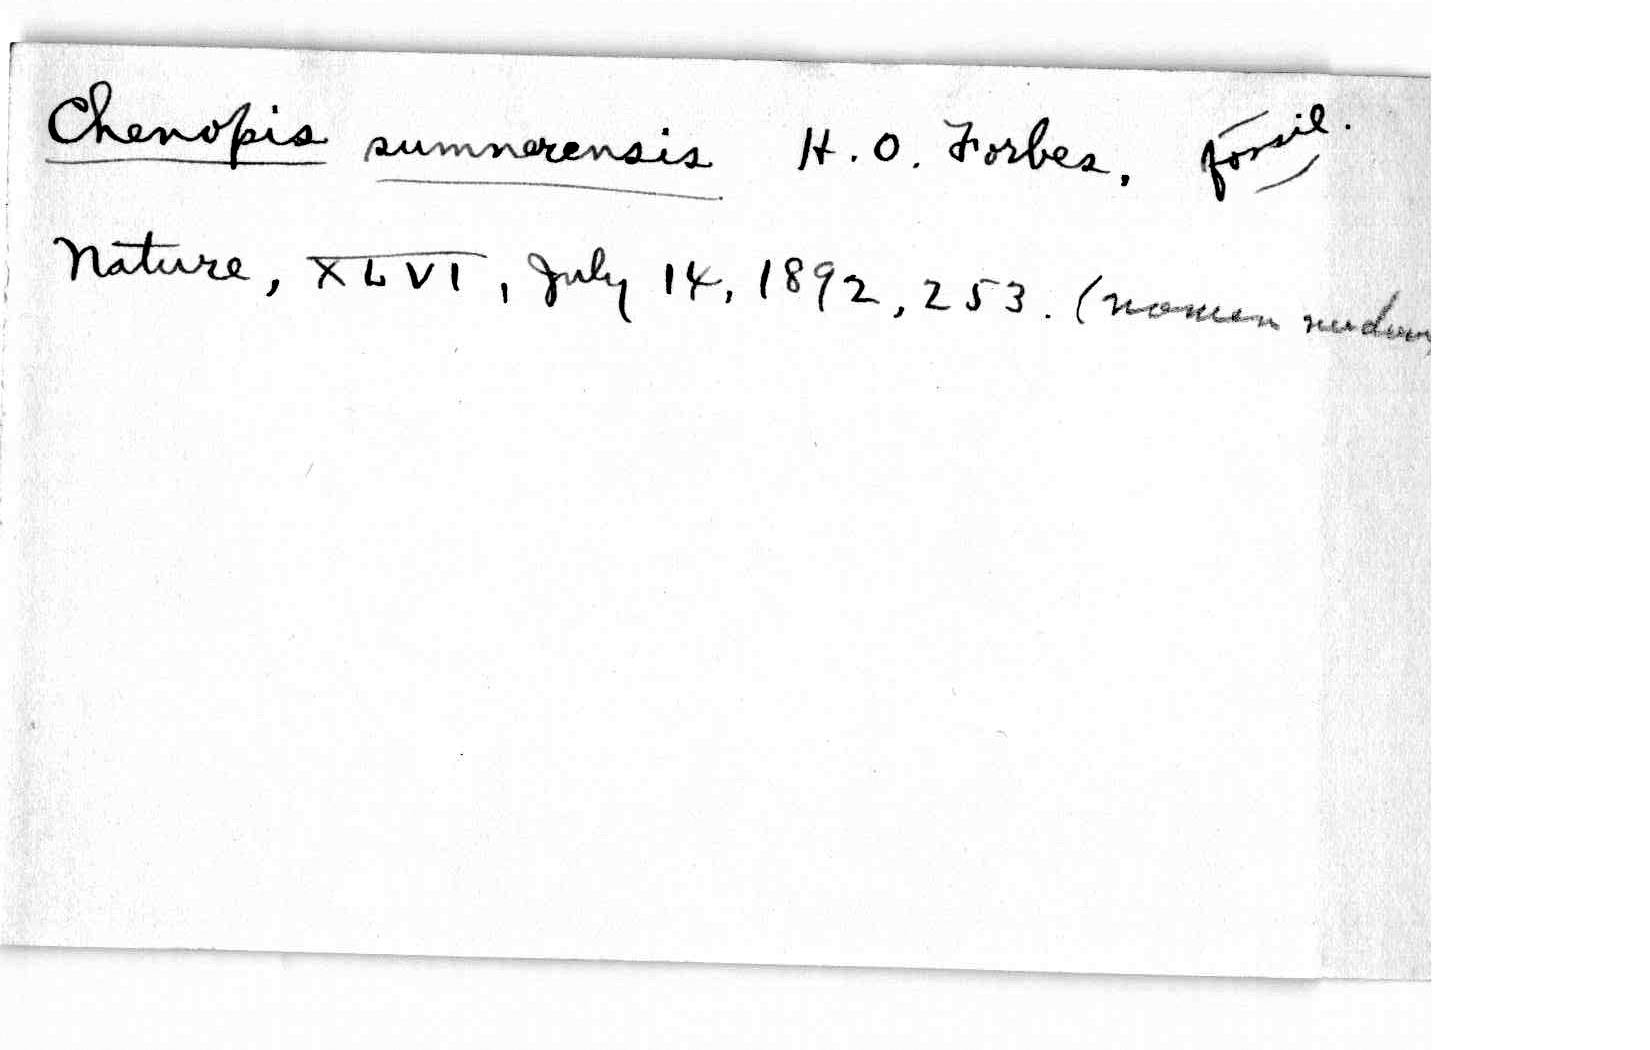 Chenopis sumnerensis H. O. Forbes, fossil.
Nature, XLVI, July 14, 1892, 253. (nomen nudum